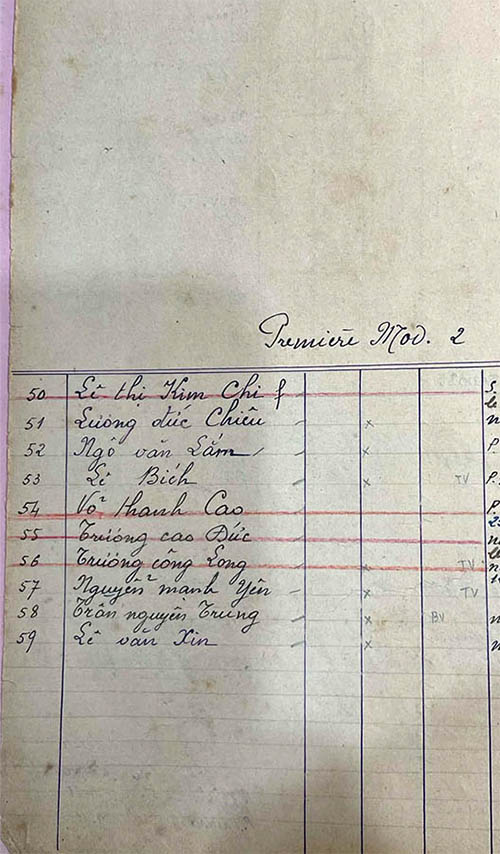 Première Mod. 2
50 Lê thị Kim Chi f
51 Lương đức Chiêu x
52 Ngô văn Lắm x P.
53 Lê Bích x TV P.
54 Võ thanh Cao P
55 Trương cao Đức
56 Trương công Long x TV
57 Nguyễn mạnh Yên x TV
58 Trần nguyên Trung x BV
59 Lê văn Xin x